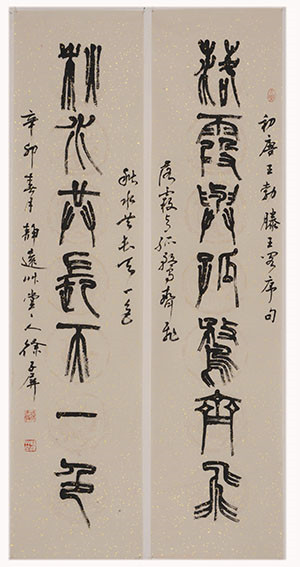 初唐王勃滕王閣序句
落霞與孤鶩齊飛
落霞与孤鶩齊飛
秋水共長天一色
秋水共長天一色
辛卯春月靜遠艸堂主人徐子屏